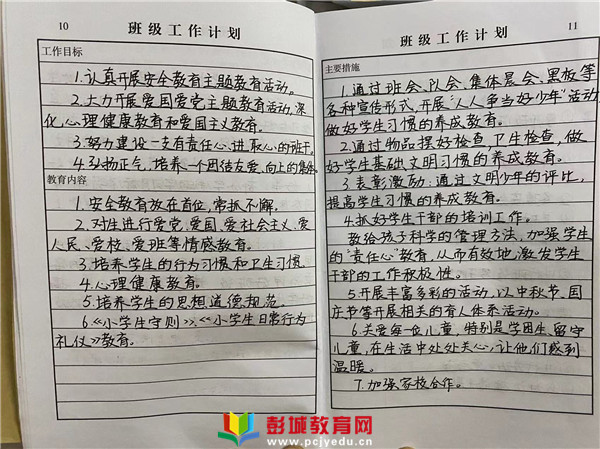 10
班级工作计划
工作目标
1.认真开展安全教育主题教育活动。
2.大力开展爱国爱党主题教育活动,深
化心理健康教育和爱国主义教育。
3.努力建设一支有责任心、进取心的班干。
4.弘扬正气,培养一个团结友爱、向上的集体。
教育内容
1.安全教育放在首位,常抓不懈。
2.对生进行爱党、爱国、爱社会主义、爱
人民、爱校、爱班等情感教育。
3.培养学生的行为习惯和卫生习惯
4.心理健康教育。
5.培养学生的思想道德规范。
6.《小学生守则》、《小学生日常行为
礼仪》教育。
11
班级工作计划
主要措施
1.通过班会、队会、集体晨会、黑板等
各种宣传形式,开展"人人争当好少年"活动
做好学生习惯的养成教育。
2.通过物品摆好检查,卫生检查,做
好学生基础文明习惯的养成教育。
3.表彰激励:通过文明少年的评比,
提高学生习惯的养成教育。
4.抓好学生干部的培训工作。
教给孩子科学的管理方法,加强学生
的"责任心"教育,从而有效地激发学生
干部的工作积极性。
5.开展丰富多彩的活动,以中秋节、国
庆节等开展相关的育人体系活动。
6.关爱每一位儿童,特别是学困生、留守
儿童,在生活中处处关心,让他们感到
温暖。
7.加强家校合作。
彭城教育网
www.pcjyedu.cn